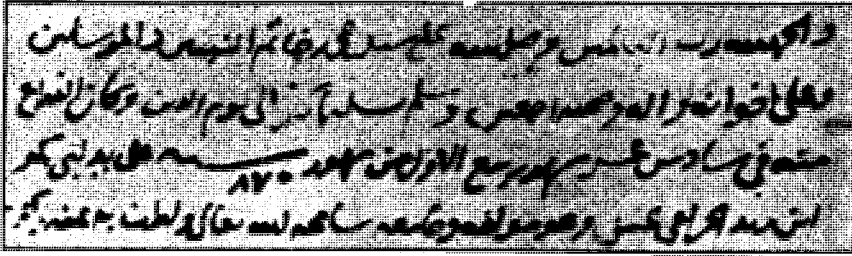 والحمد لله رب العالمين وصلى الله على سيدنا محمد خاتم النبيين والمرسلين
وعلى اخوانه واله وصحبه اجمعين وسلم تسليما الى يوم الدين وكان الفراغ
منه في سادس عشر شهر ربيع الاول من شهور سنة ٨٧٠ على يد ابي بكر
ابن زيد الجراعي الحنبلي وهو مولفه وجامعه سامحه الله تعالى ولطف به بمنه